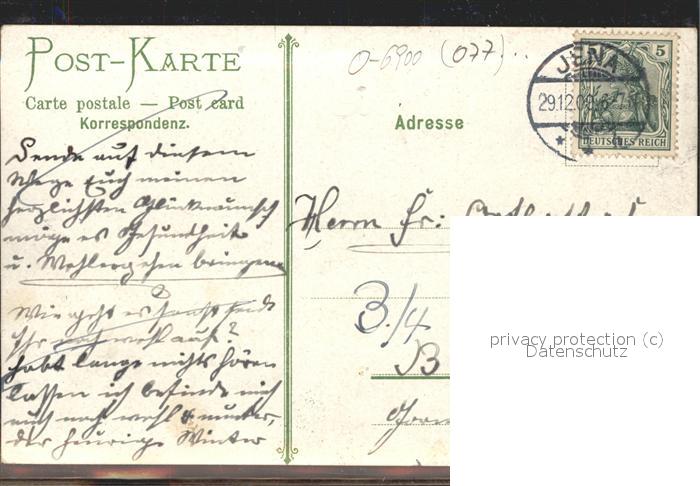 POST-KARTE
Carte postale — Post card
Korrespondenz.
O-6900 (077)...
Adresse
JENA
29.12.09.6-7
5
DEUTSCHES REICH
Sende auf diesem
Wege Euch meinen
herzlichsten Glückwunsch
möge es Gesundheit
u. Wohlergehen bringen
Wie geht es sonst seid
Ihr noch wohl auf?
habt lange nichts hören
lassen ich befinde mich
auch noch wohl & munter,
der heurige Winter
Herrn Fr:
3./4
B
privacy protection (c)
Datenschutz